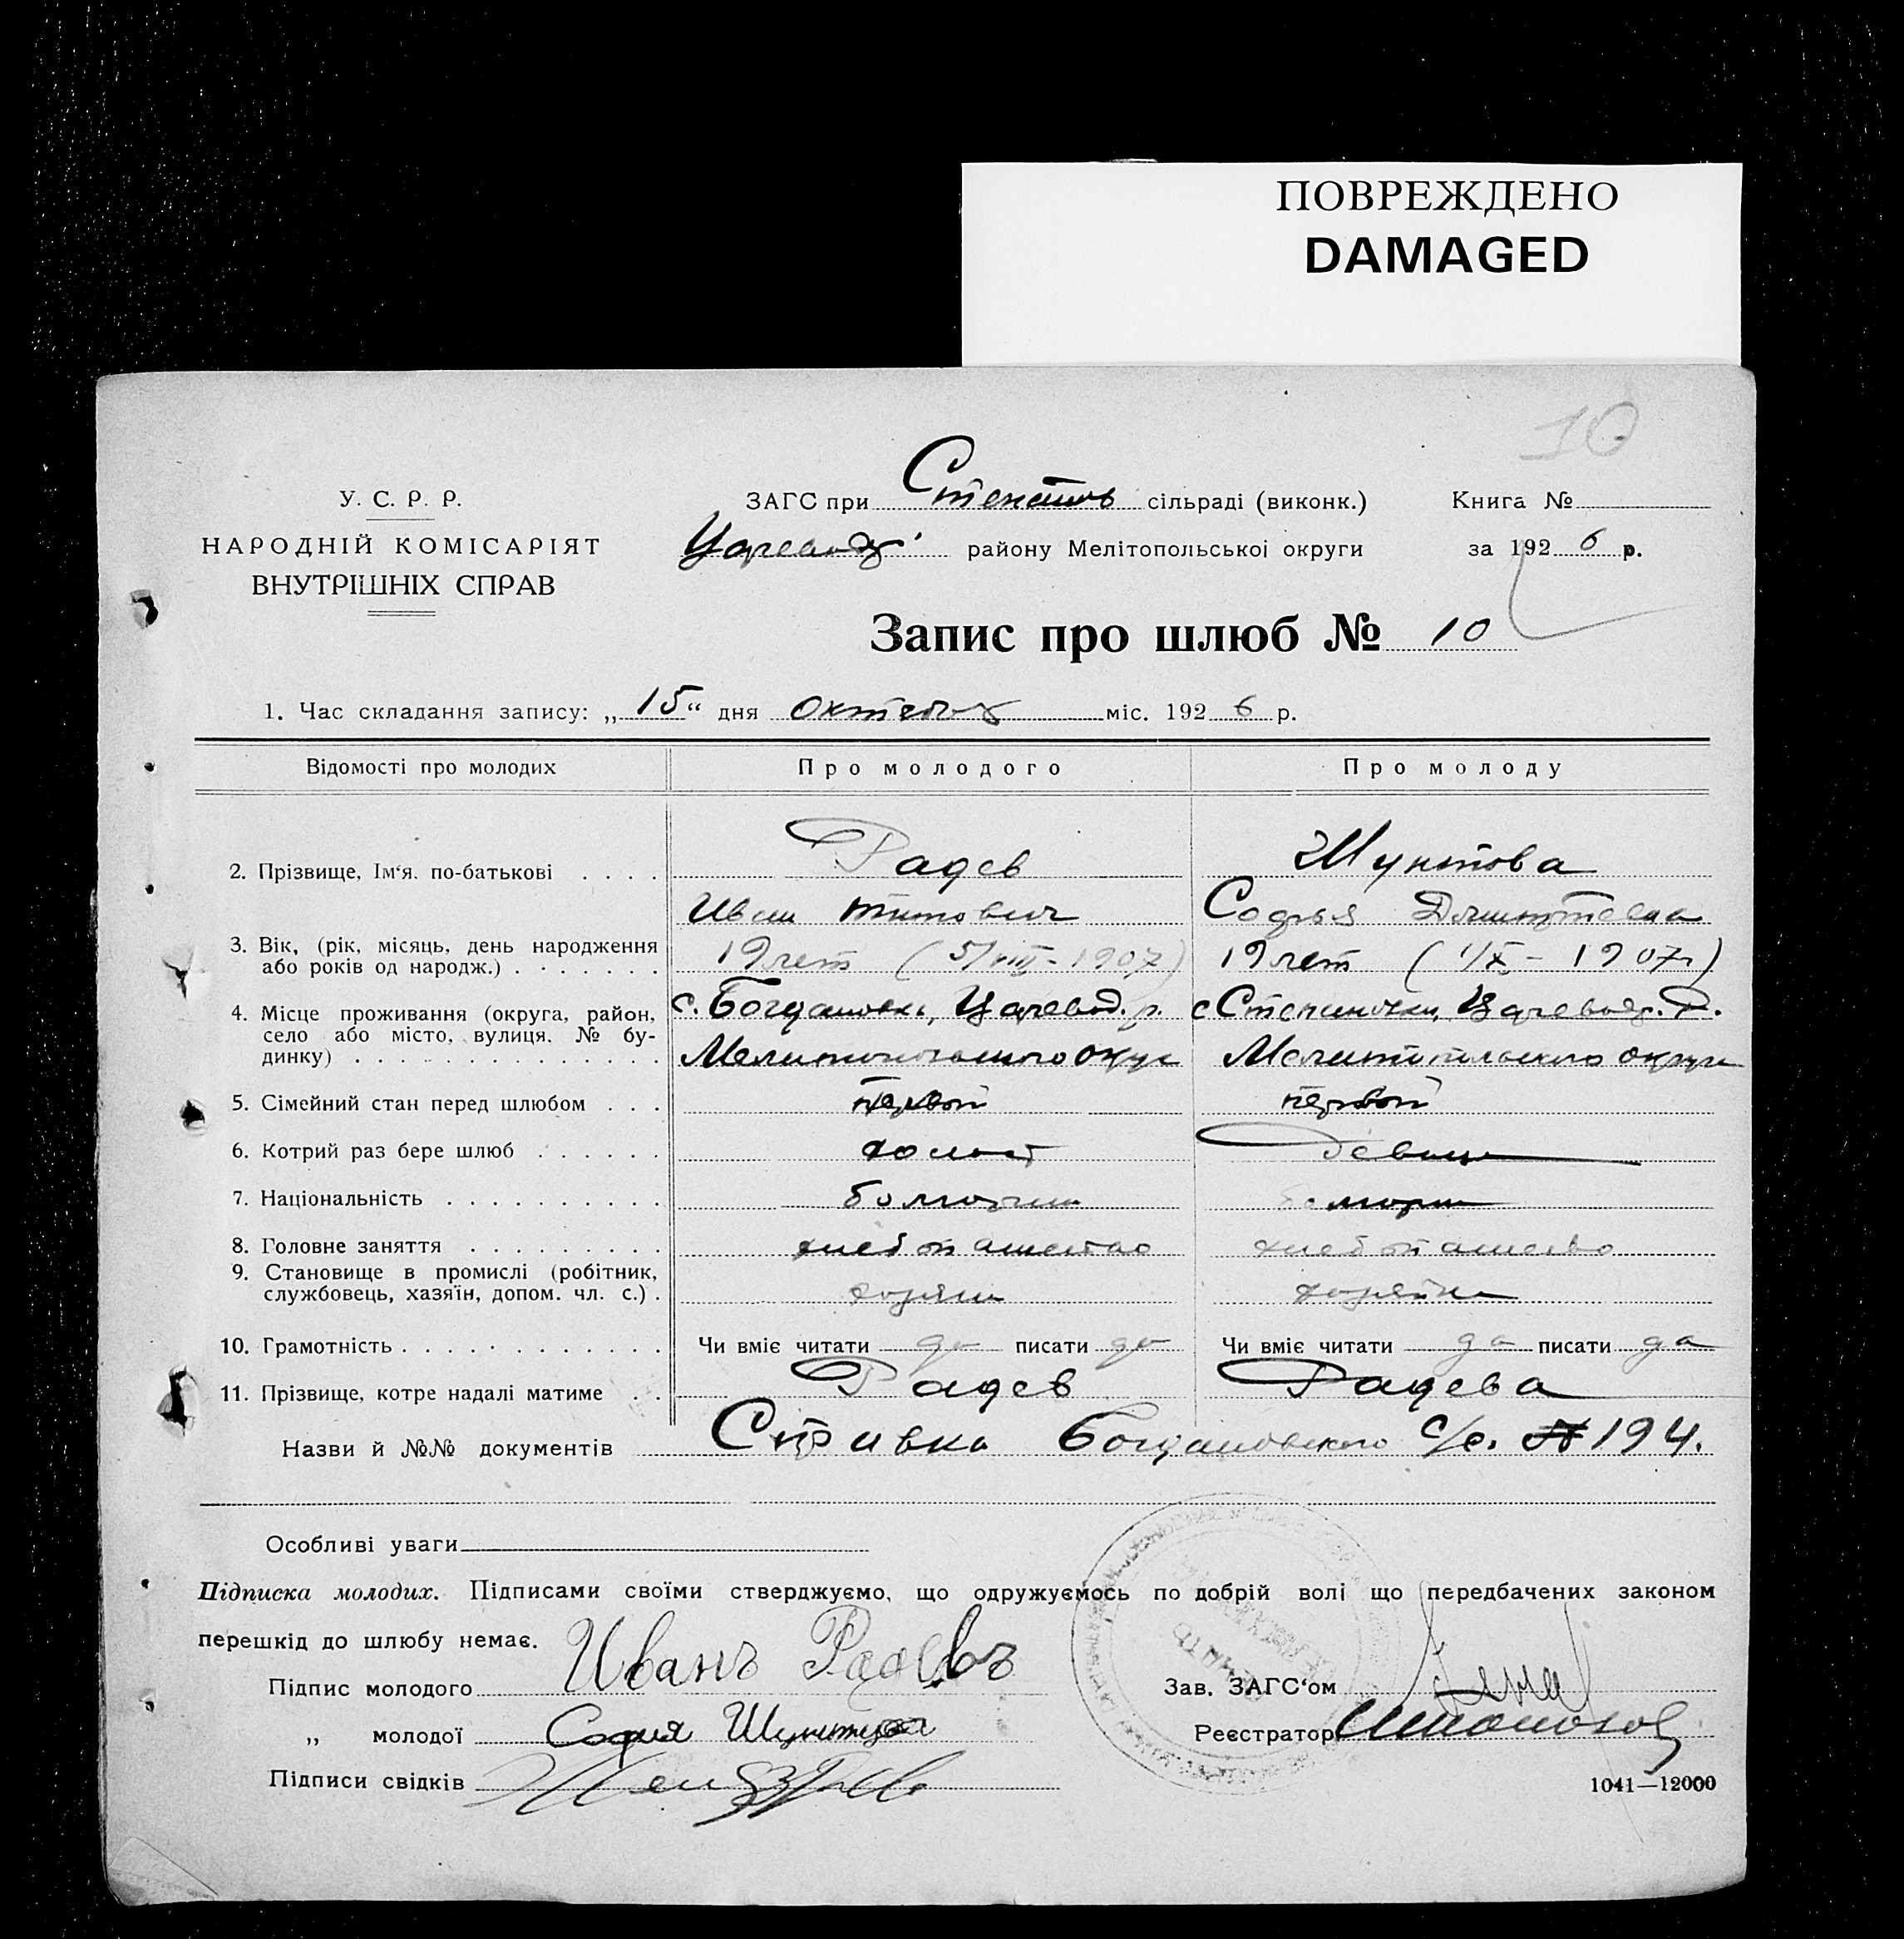 ПОВРЕЖДЕНО
DAMAGED
10
У. С. Р. Р.
НАРОДНІЙ КОМІСАРІЯТ
ВНУТРІШНІХ СПРАВ
ЗАГС при сільраді (виконк.)
району Мелітопольськоі округи
Книга №
за 1926 р.
Запис про шлюб № 10
1. Час складання запису: „15“ дня міс. 1926 р.
Відомості про молодих Про молодого Про молоду
2. Прізвище, Ім‘я. по-батькові . . . . Радев Шунтова
Иван Титович Софья
3. Вік, (рік, місяць, день народження
або років од народж.) . . . . . . . 19 лет (5/VIII-1907) 19 лет (1/X-1907)
4. Місце проживання (округа, район,
село або місто, вулиця. № бу-
динку) . . . . . . . . . . . . . .
с. Богдановка, Царевод. р. с Степановки, Царевод. Р.
Мелитопольского округ Мелитопольского округа
5. Сімейний стан перед шлюбом . . . первой первой
6. Котрий раз бере шлюб . . . . . . холост девица
7. Національність . . . . . . . . . .
8. Головне заняття . . . . . . . . . хлебопашество хлебопашество
9. Становище в промислі (робітник,
службовець, хазяїн, допом. чл. с.) . хозяин хозяйка
10. Грамотність . . . . . . . . . . . . Чи вміє читати да писати да Чи вміє читати да писати да
11. Прізвище, котре надалі матиме . . Радев Радева
Назви й №№ документів Справка Богдановского с/с. № 194.
Особливі уваги
Підписка молодих. Підписами своїми стверджуємо, що одружуємось по добрій волі що передбачених законом
перешкід до шлюбу немає.
Підпис молодого Иванъ Радевъ
„ молодої София Шунтова
Підписи свідків
Зав. ЗАГС‘ом
Реєстратор
1041—12000